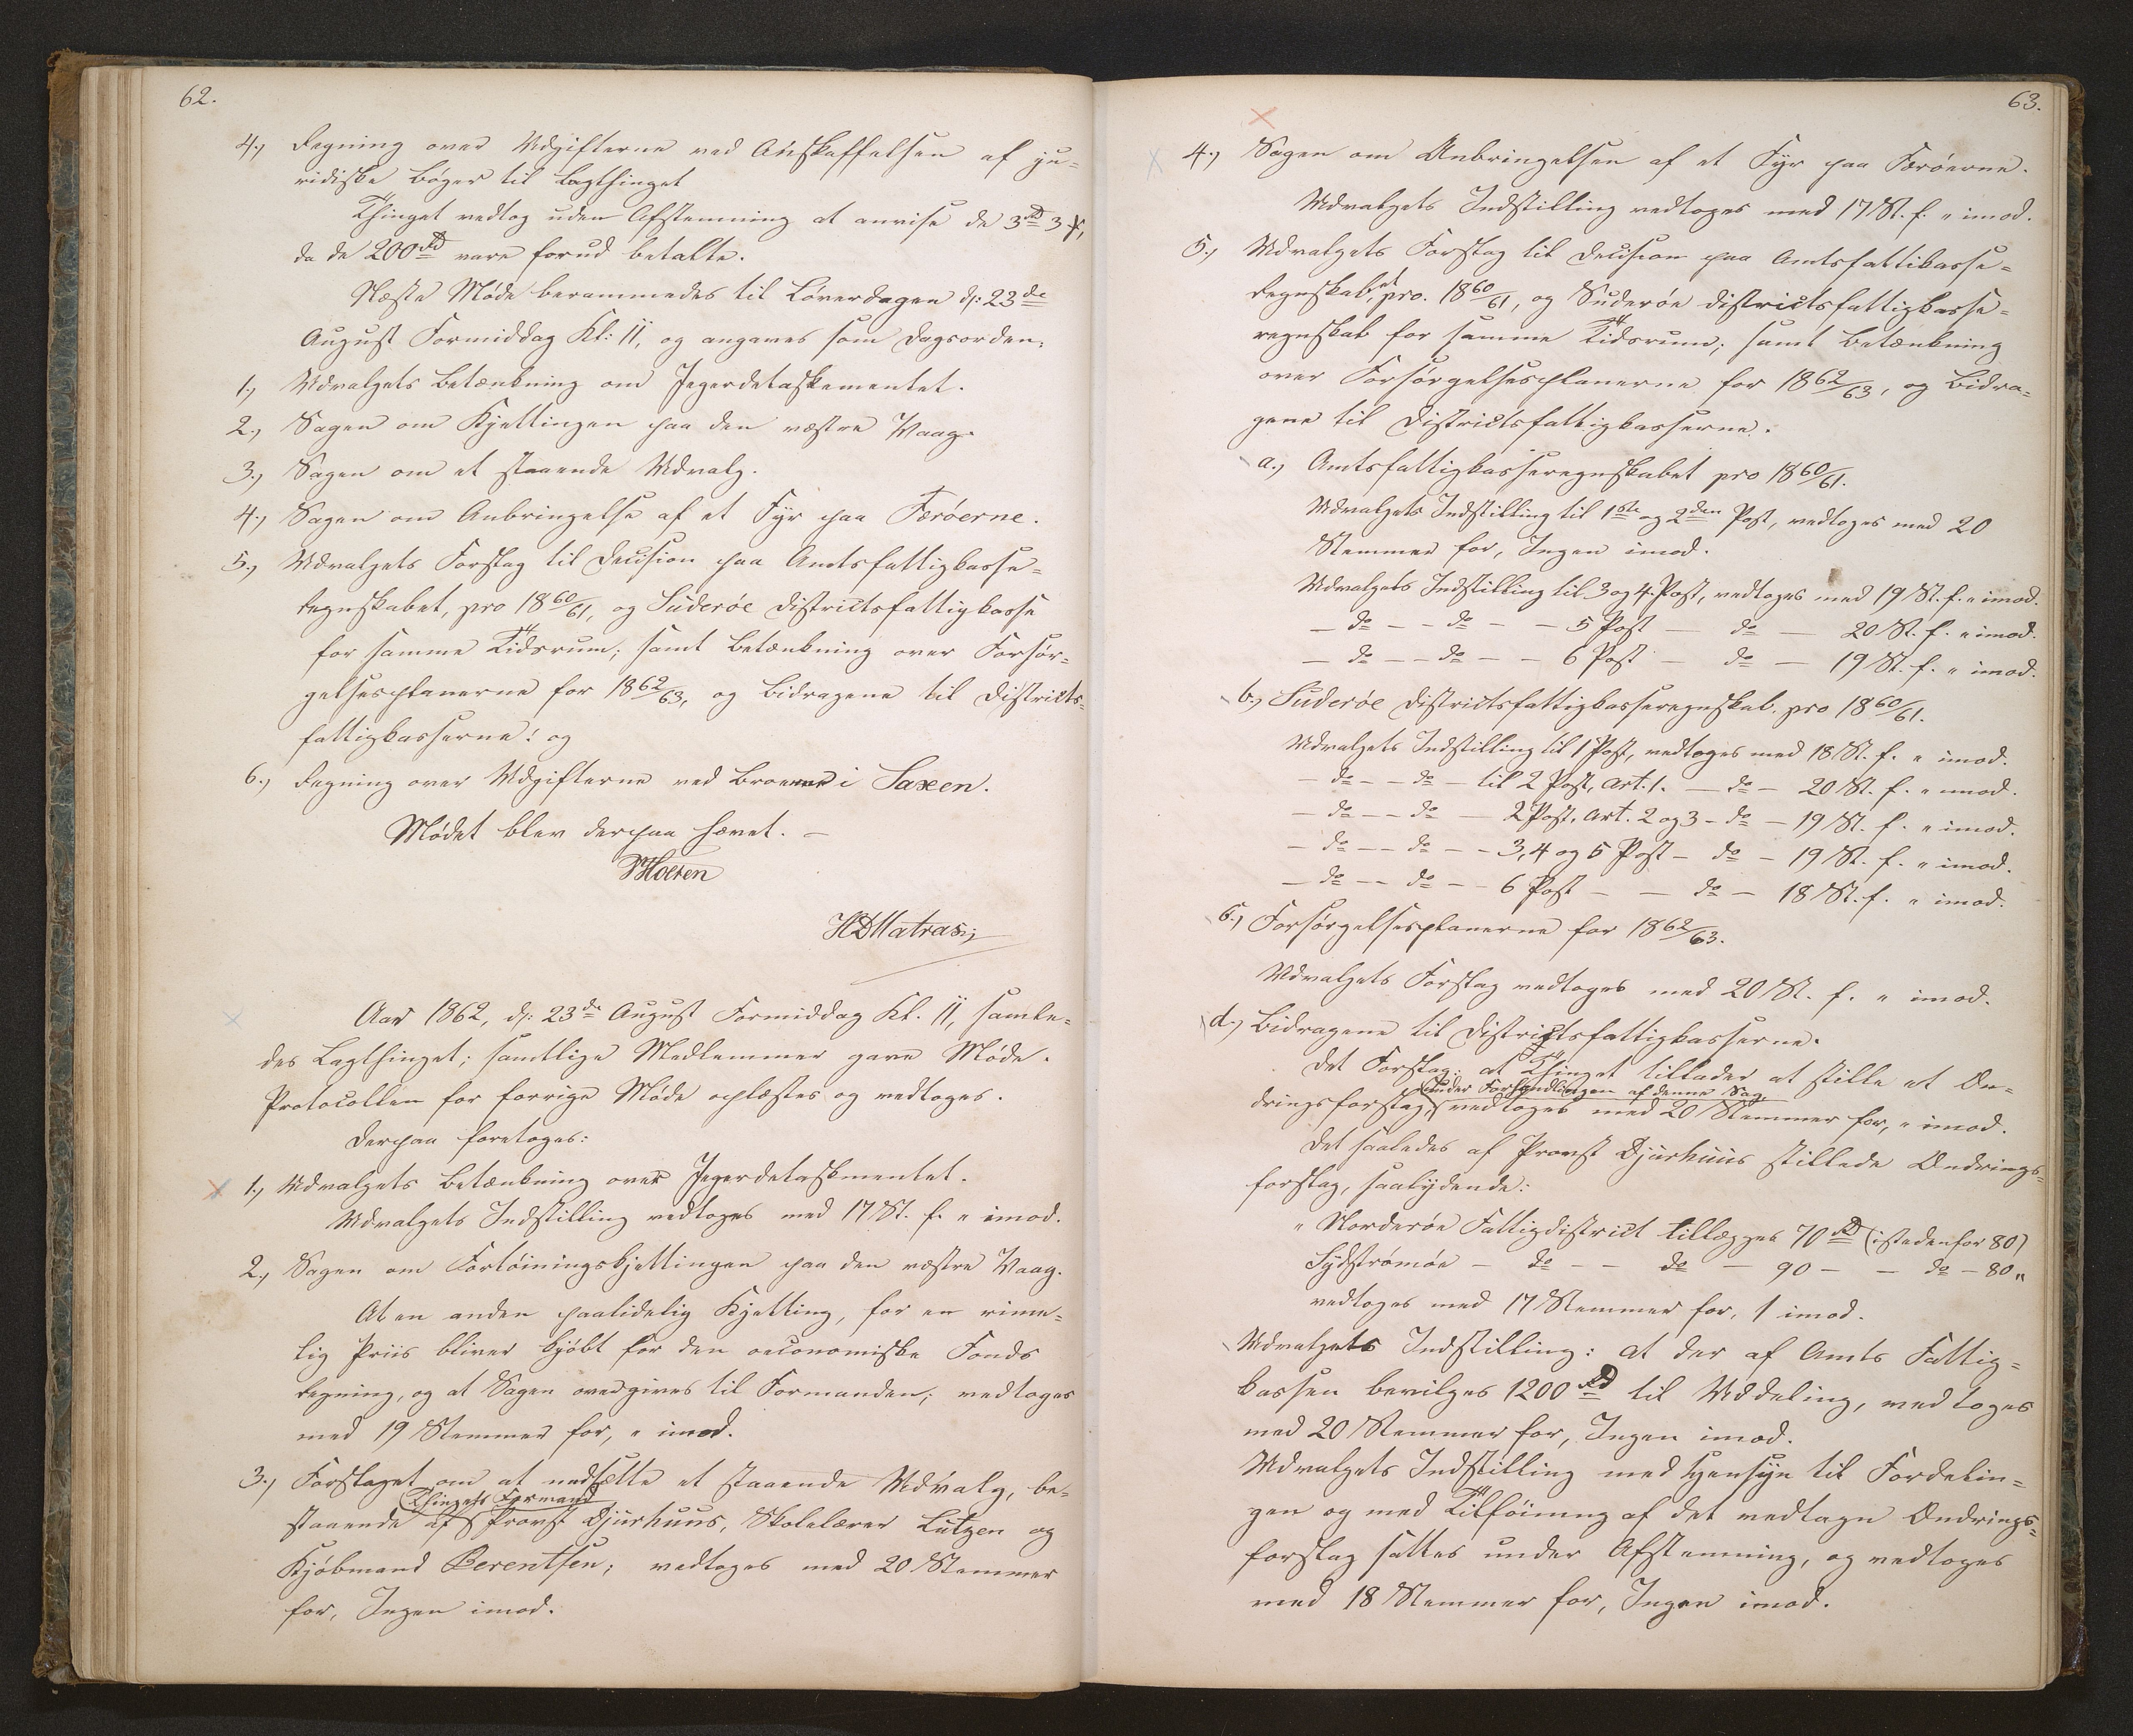 62.
4.) Regning over Udgifterne ved Anskaffelsen af ju-
ridiske Bøger til Lagthinget
Thinget vedtog uden Afstemning at anvise de 3 rd 3 ß,
da de 200 rd vare forud betalte.
Næste Møde berammedes til Løverdagen d: 23de
August Formiddag Kl: 11, og angaves som Dagsorden:
1.) Udvalgets Betænkning om Jegerdetaskementet.
2.) Sagen om Kjettingen paa den vestre Vaag.
3.) Sagen om et staaende Udvalg.
4.) Sagen om Anbringelse af et Fyr paa Færøerne.
5.) Udvalgets Forslag til Decision paa Amtsfattigkasse-
regnskabet, pro 1860/61, og Suderøe Districtsfattigkasse
for samme Tidsrum; samt Betænkning over Forsør-
gelsesplanerne for 1862/63, og Bidragene til Districts-
fattigkasserne! og
6.) Regning over Udgifterne ved Broerne i Saxen.
Mødet blev derpaa hævet. —
HDMatras
Aar 1862, d: 23de August Formiddag Kl. 11, samle-
des Lagthinget; samtlige Medlemmer gave Møde.
Protocollen for forrige Møde oplæstes og vedtoges.
Derpaa foretoges:
1.) Udvalgets Betænkning over Jegerdetaskmentet.
Udvalgets Indstilling vedtoges med 17 St. f. " imod.
2.) Sagen om Fortøiningskjettingen paa den vestre Vaag.
At en anden paalidelig Kjetting, for en rime-
lig Priis bliver kjøbt for den oeconomiske Fonds
Regning, og at Sagen overgives til Formanden; vedtoges
med 19 Stemmer for, " imod.
3.) Forslaget om at nedsætte et staaende Udvalg, be-
Thingets Formand
staaende af Provst Djurhuus, Skolelærer Lützen og
Kjøbmand Berentsen; vedtoges med 20 Stemmer
for, Ingen imod.
63.
4.) Sagen om Anbringelsen af et Fyr paa Færøerne.
Udvalgets Indstilling vedtoges med 17 St. f. " imod.
5.) Udvalgets Forslag til Decision paa Amtsfattikasse-
regnskabet pro. 1860/61, og Suderøe Districtsfattigkasse-
regnskab for samme Tidsrum; samt Betænkning
over Forsørgelsesplanerne for 1862/63, og Bidra-
gene til Districtsfattigkasserne.
a.) Amtsfattigkasseregnskabet pro 1860/61.
Udvalgets Indstilling til 1ste og 2den Post, vedtoges med 20
Stemmer for, Ingen imod.
Udvalgets Indstilling til 3 og 4 Post, vedtoges med 19 St. f. " imod.
— do — — do — — 5 Post — do — 20 St. f. " imod.
— do — — do — — 6 Post — do — 19 St. f. " imod.
b.) Suderøe Districtsfattigkasseregnskab. pro 1860/61.
Udvalgets Indstilling til 1 Post, vedtoges med 18 St. f. " imod.
— do — — do — til 2 Post, Art. 1. — do — 20 St. f. " imod.
— do — — do — 2 Post, Art. 2 og 3 — do — 19 St. f. " imod.
— do — — do — — 3, 4 og 5 Post — do — 19 St. f. " imod.
— do — — do — — 6 Post — — do — 18 St. f. " imod.
c.) Forsørgelsesplanerne for 1862/63.
Udvalgets Forslag vedtoges med 20 St. f. " imod.
d.) Bidragene til Districtsfattigkasserne.
Det Forslag: at Thinget tillader at stille et Æn-
under Forhandlingen af denne Sag,
dringsforslag, vedtoges med 20 Stemmer for, " imod.
Det saaledes af Provst Djurhuus stillede Ændrings-
forslag, saalydende:
" Norderøe Fattigdistrict tillægges 70 rd (istedenfor 80)
Sydstrømøe — do — — do — 90 — — do — 80 "
vedtoges med 17 Stemmer for, 1 imod.
Udvalgets Indstilling: at der af Amts Fattig-
kassen bevilges 1200 rd til Uddeling, vedtoges
med 20 Stemmer for, Ingen imod.
Udvalgets Indstilling med Hensyn til Fordelin-
gen og med Tilføining af det vedtagne Ændrings-
forslag sattes under Afstemning, og vedtoges
med 18 Stemmer for, Ingen imod.